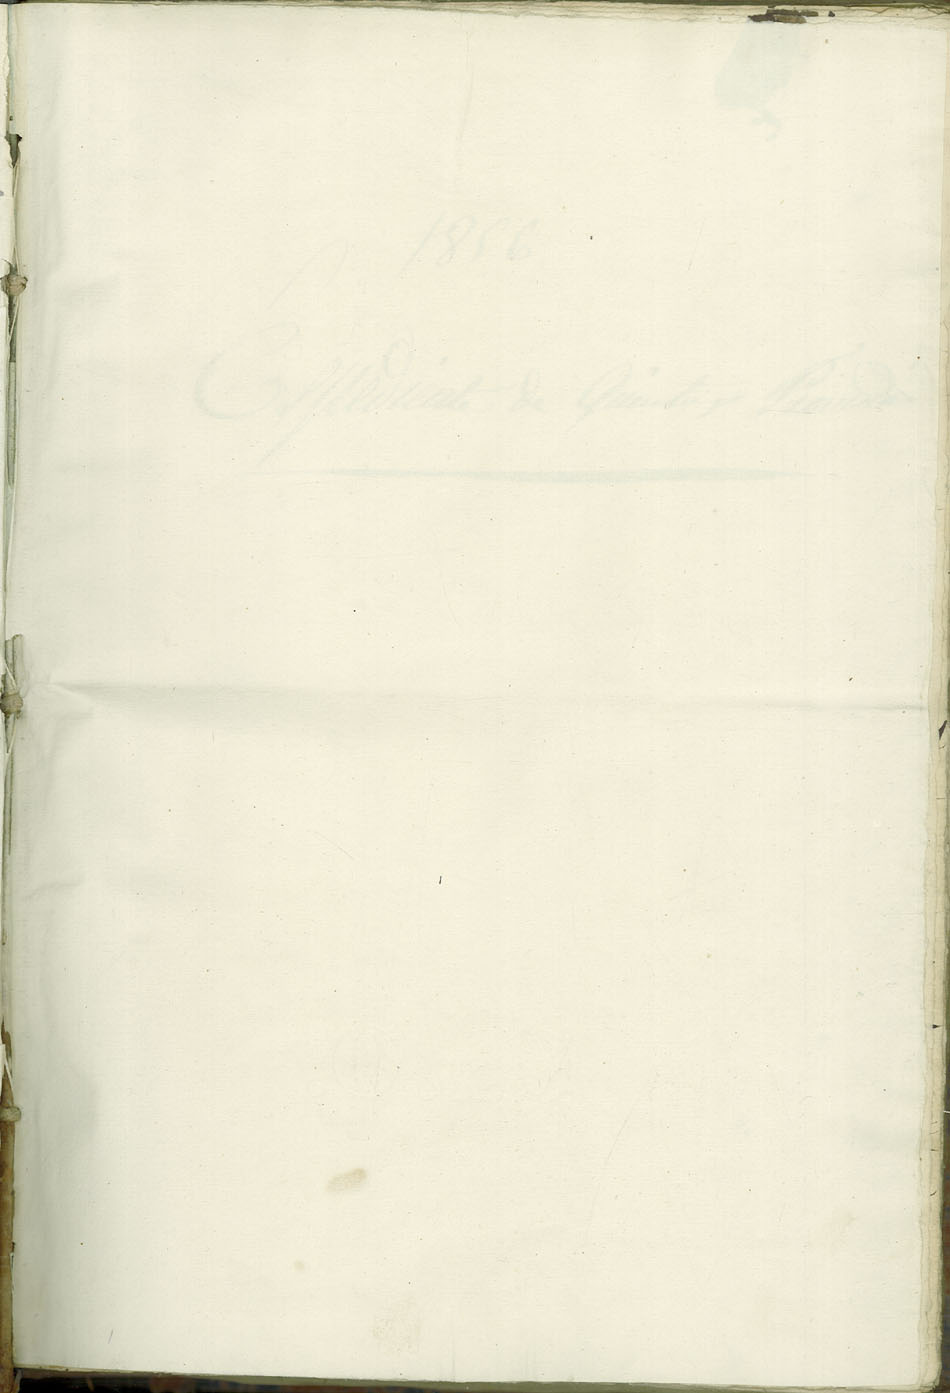 1856
Expediente de Quintas